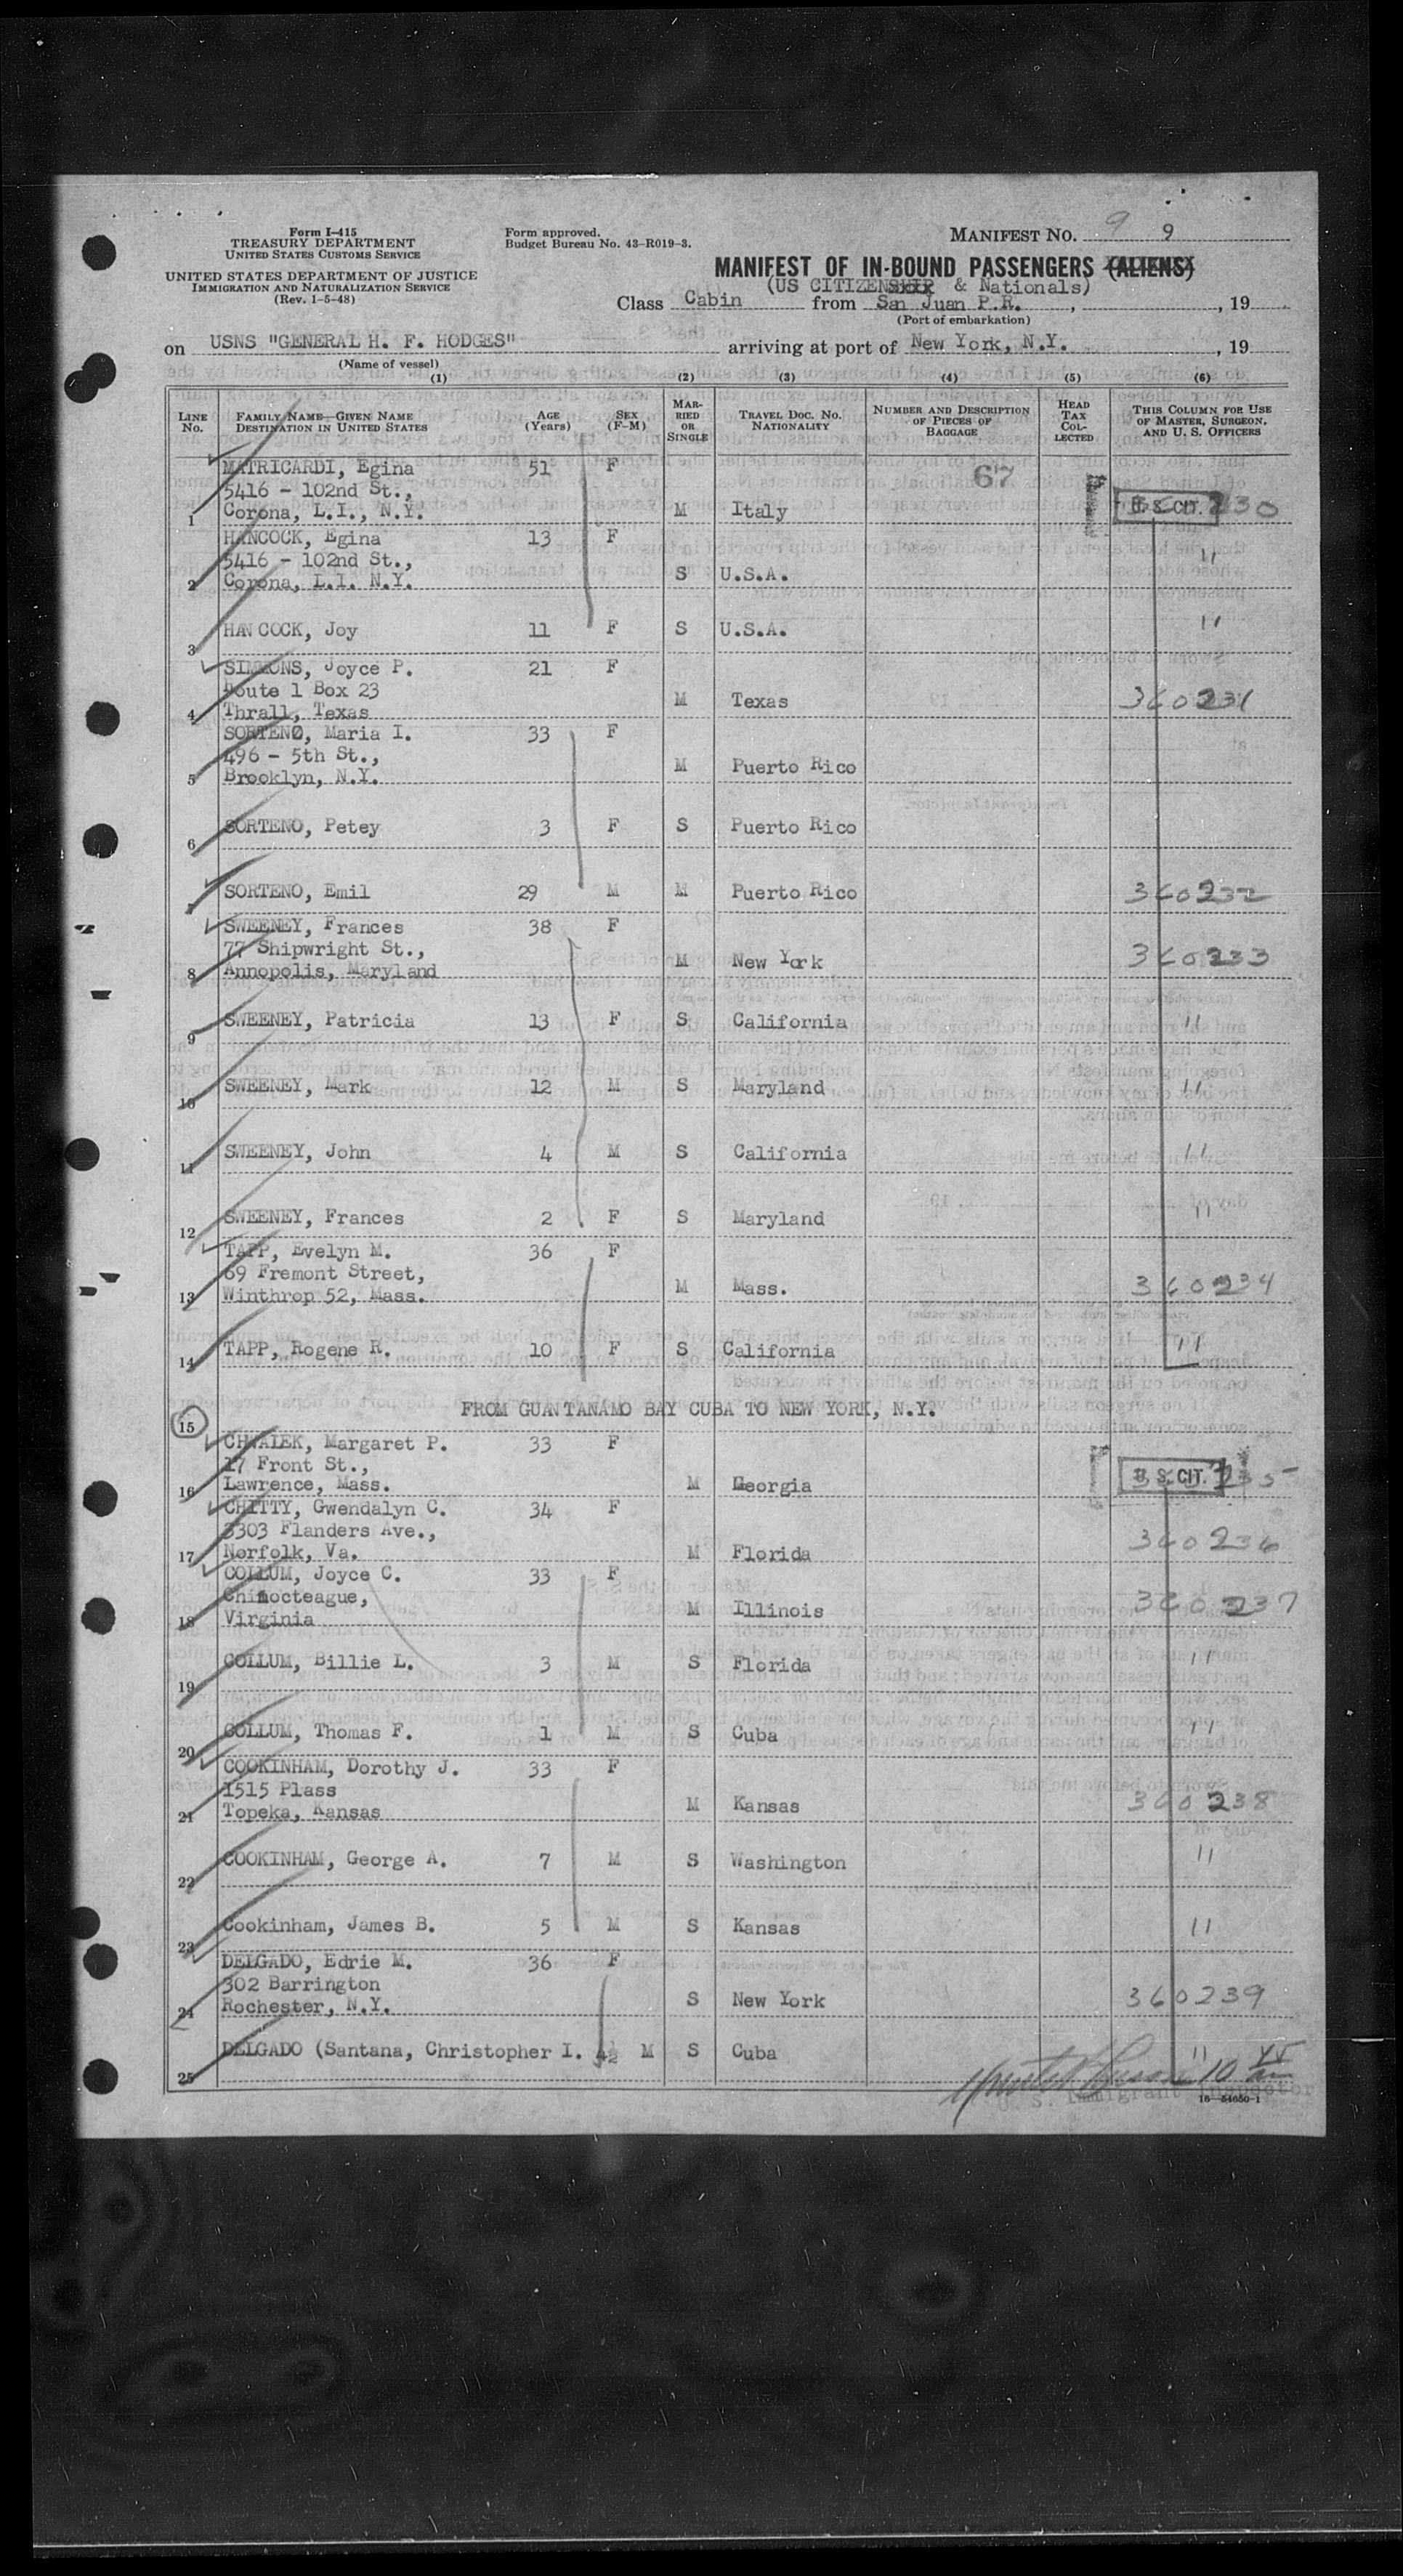 Form I-415
TREASURY DEPARTMENT
UNITED STATES CUSTOMS SERVICE
UNITED STATES DEPARTMENT OF JUSTICE
IMMIGRATION AND NATURALIZATION SERVICE
(Rev. 1-5-48)
Form approved.
Budget Bureau No. 43-R019-3.
MANIFEST NO. 9 9
MANIFEST OF IN-BOUND PASSENGERS (ALIENS)
(US CITIZENSHIP & Nationals)
Class Cabin from San Juan P.R. , , 19
(Port of embarkation)
on USNS "GENERAL H. F. HODGES" arriving at port of New York, N.Y. , 19
(Name of vessel)
(1) (2) (3) (4) (5) (6)
LINE No. FAMILY NAME—GIVEN NAME DESTINATION IN UNITED STATES AGE (Years) SEX (F-M) MARRIED OR SINGLE TRAVEL DOC. NO. NATIONALITY NUMBER AND DESCRIPTION OF PIECES OF BAGGAGE HEAD TAX COLLECTED THIS COLUMN FOR USE OF MASTER, SURGEON, AND U. S. OFFICERS
MATRICARDI, Egina 51 F 67
5416 - 102nd St.,
1 Corona, L.I., N.Y. M Italy U.S. CIT. 230
HANCOCK, Egina 13 F
5416 - 102nd St., "
2 Corona, L.I. N.Y. S U.S.A.
3 HANCOCK, Joy 11 F S U.S.A. "
SIMMONS, Joyce P. 21 F
Route 1 Box 23
4 Thrall, Texas M Texas 360231
SORTENO, Maria I. 33 F
496 - 5th St.,
5 Brooklyn, N.Y. M Puerto Rico
6 SORTENO, Petey 3 F S Puerto Rico
SORTENO, Emil 29 M M Puerto Rico 360232
SWEENEY, Frances 38 F
77 Shipwright St.,
8 Annopolis, Maryland M New York 360233
9 SWEENEY, Patricia 13 F S California "
10 SWEENEY, Mark 12 M S Maryland "
11 SWEENEY, John 4 M S California "
12 SWEENEY, Frances 2 F S Maryland "
TAPP, Evelyn M. 36 F
69 Fremont Street,
13 Winthrop 52, Mass. M Mass. 360234
14 TAPP, Rogene R. 10 F S California "
15 FROM GUANTANAMO BAY CUBA TO NEW YORK, N.Y.
CHWALEK, Margaret P. 33 F
17 Front St.,
16 Lawrence, Mass. M Georgia U.S. CIT. 235
CHITTY, Gwendalyn C. 34 F
3303 Flanders Ave.,
17 Norfolk, Va. M Florida 360236
COLLUM, Joyce C. 33 F
Chinocteague,
18 Virginia M Illinois 360237
19 COLLUM, Billie L. 3 M S Florida "
20 COLLUM, Thomas F. 1 M S Cuba "
COOKINHAM, Dorothy J. 33 F
1515 Plass
21 Topeka, Kansas M Kansas 360238
22 COOKINHAM, George A. 7 M S Washington "
23 Cookinham, James B. 5 M S Kansas "
DELGADO, Edrie M. 36 F
302 Barrington
24 Rochester, N.Y. S New York 360239
25 DELGADO (Santana, Christopher I. 4½ M S Cuba "
U. S. Immigrant Inspector
16—54650-1